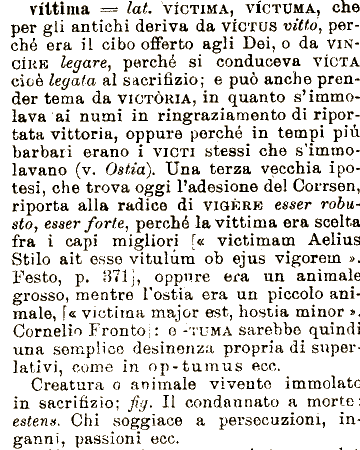 víttima = lat. VÍCTIMA, VÍCTUMA, che
per gli antichi deriva da VÍCTUS vitto, per-
ché era il cibo offerto agli Dei, o da VIN-
CÍRE legare, perché si conduceva VÍCTA
cioè legata al sacrifizio; e può anche pren-
der tema da VICTÒRIA, in quanto s'immo-
lava ai numi in ringraziamento di ripor-
tata vittoria, oppure perché in tempi più
barbari erano i VICTI stessi che s'immo-
lavano (v. Ostia). Una terza vecchia ipo-
tesi, che trova oggi l'adesione del Corrsen,
riporta alla radice di VIGÈRE esser robu-
sto, esser forte, perché la vittima era scelta
fra i capi migliori [« victimam Aelius
Stilo ait esse vitulum ob ejus vigorem ».
Festo, p. 371], oppure era un animale
grosso, mentre l'ostia era un piccolo ani-
male, [« victima major est, hostia minor ».
Cornelio Fronto]: e -TUMA sarebbe quindi
una semplice desinenza propria di super-
lativi, come in op-tumus ecc.
Creatura o animale vivente immolato
in sacrifizio; fig. Il condannato a morte:
estens. Chi soggiace a persecuzioni, in-
ganni, passioni ecc.